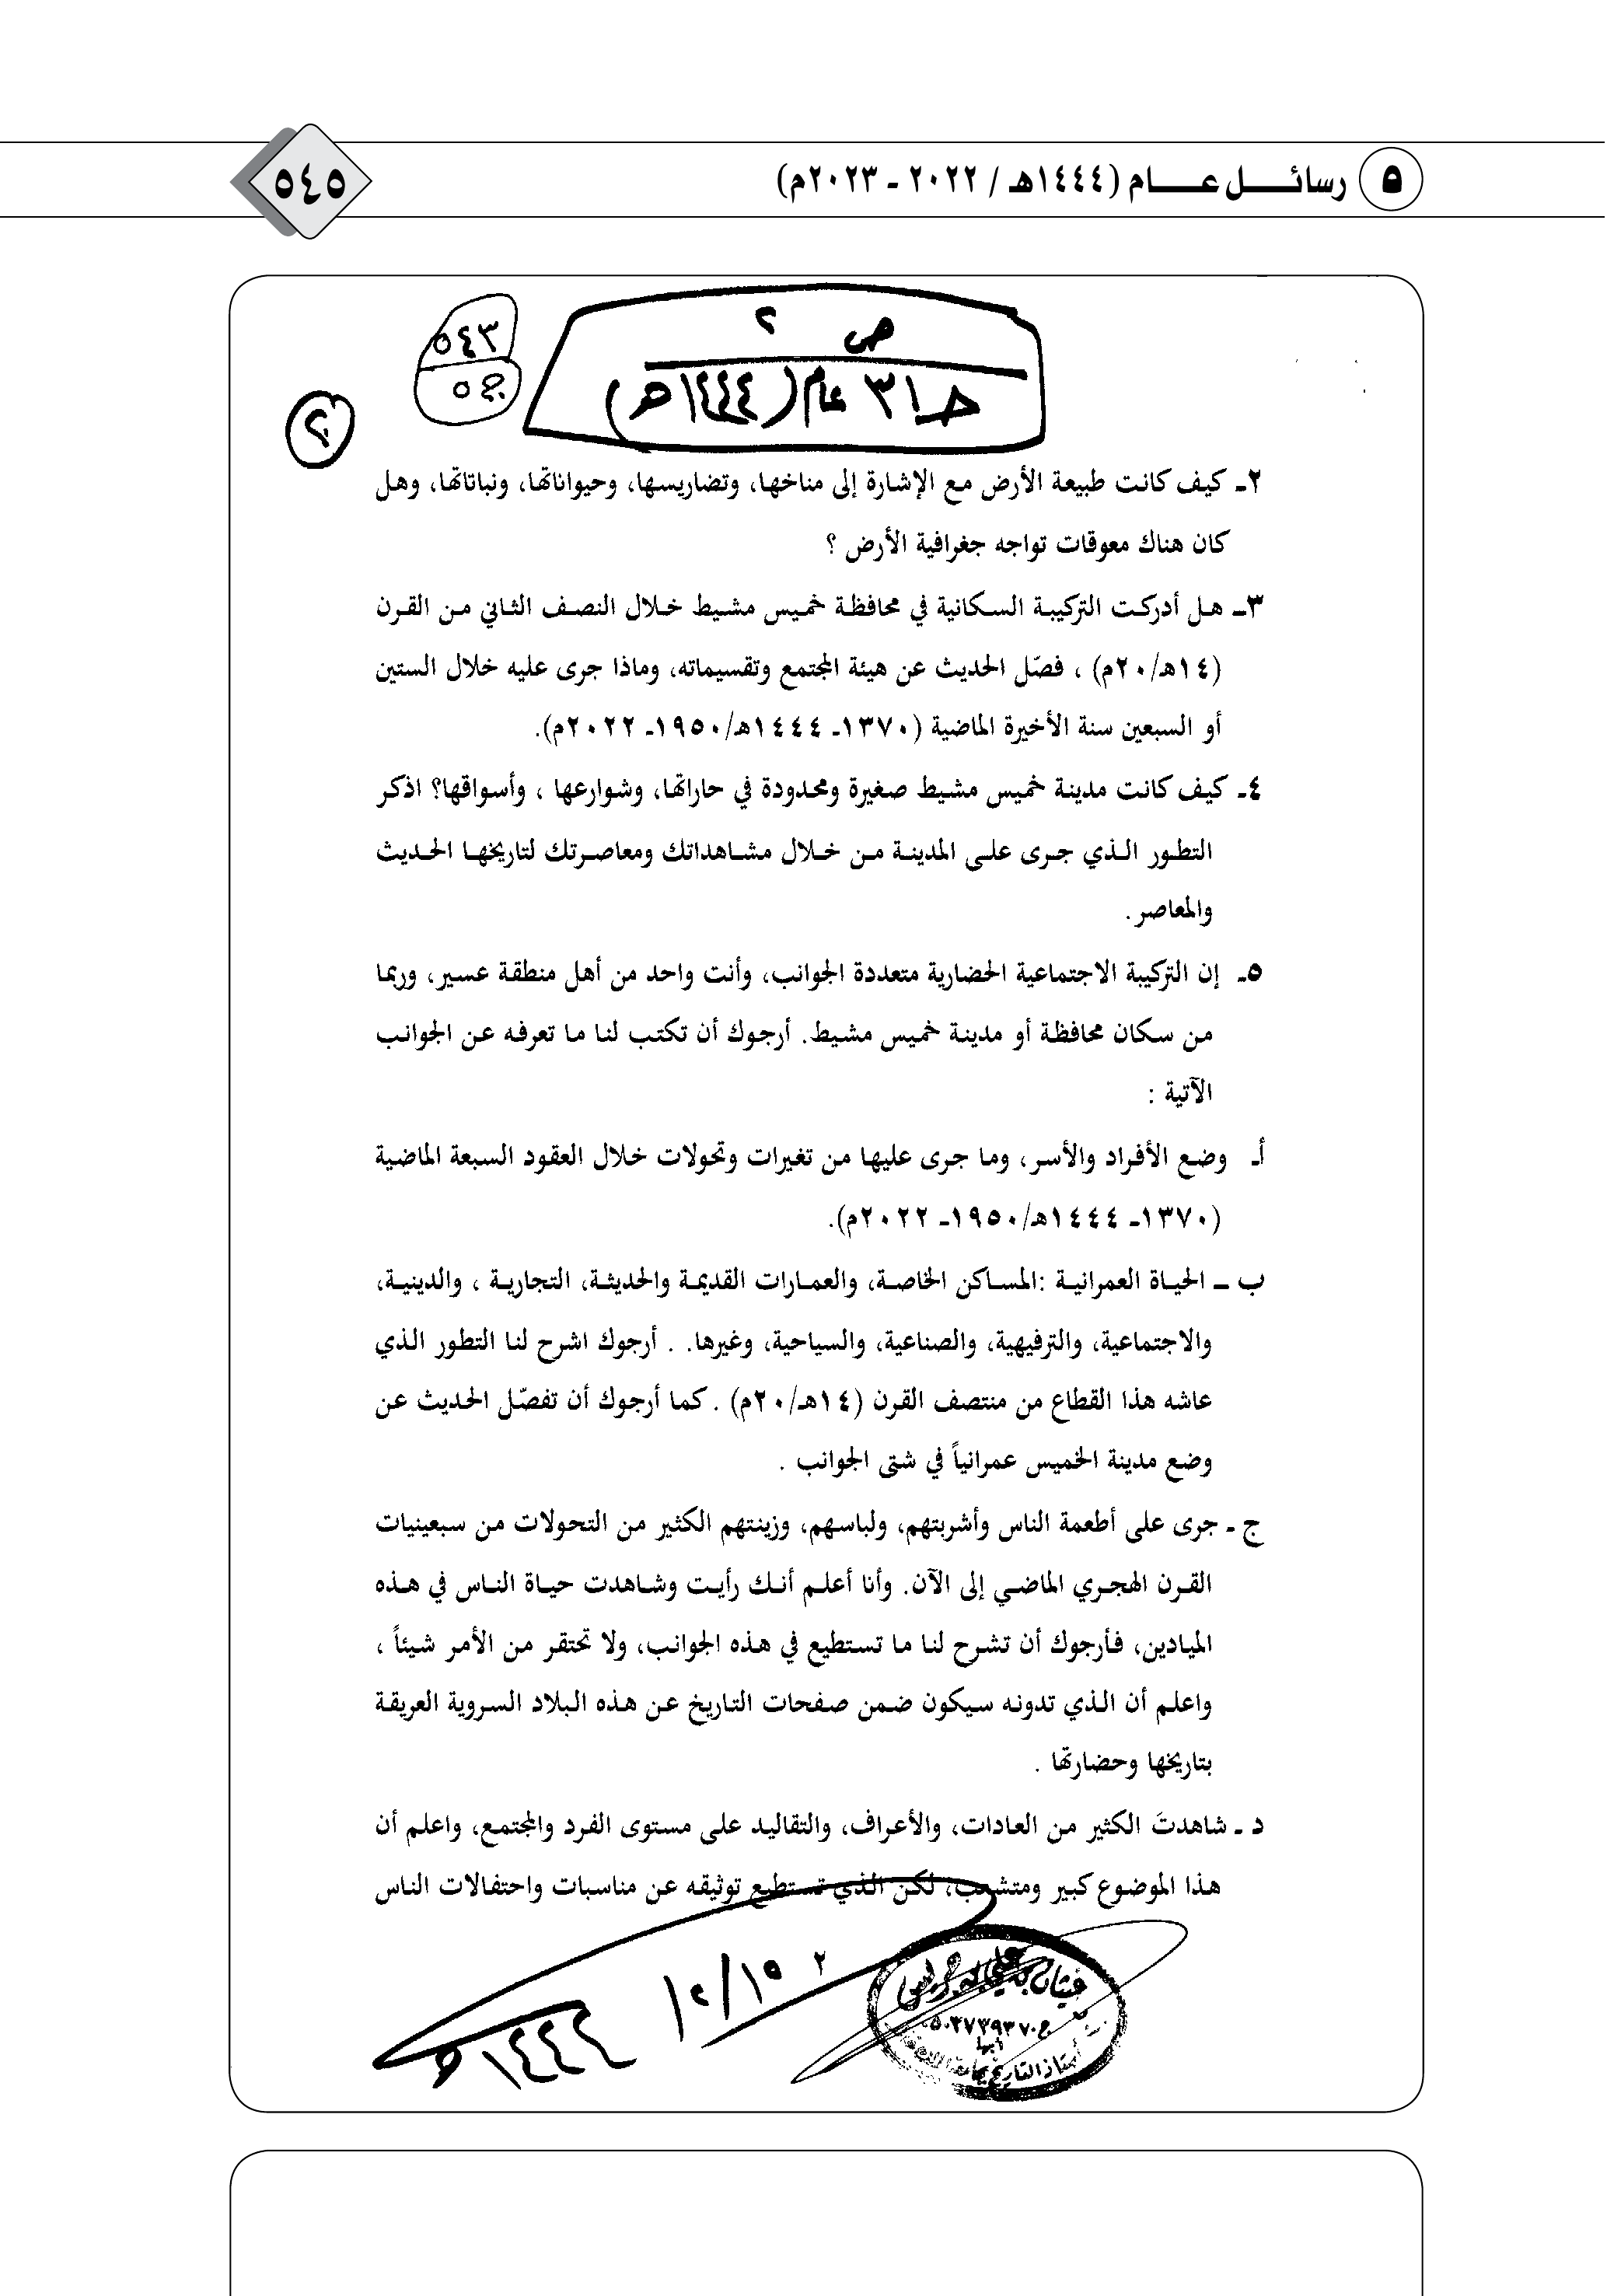 ٥ رسائل عام (١٤٤٤هـ / ٢٠٢٢ ـ ٢٠٢٣م)
٥٤٥
ص ٢
٣١ عام (١٤٤٤هـ)
٥٤٣
ج٥
٢
٢ـ كيف كانت طبيعة الأرض مع الإشارة إلى مناخها، وتضاريسها، وحيواناتها، ونباتاتها، وهل
كان هناك معوقات تواجه جغرافية الأرض ؟
٣ـ هل أدركت التركيبة السكانية في محافظة خميس مشيط خلال النصف الثاني من القرن
(١٤هـ/٢٠م) ، فصّل الحديث عن هيئة المجتمع وتقسيماته، وماذا جرى عليه خلال الستين
أو السبعين سنة الأخيرة الماضية (١٣٧٠ـ ١٤٤٤هـ/١٩٥٠ـ ٢٠٢٢م).
٤ـ كيف كانت مدينة خميس مشيط صغيرة ومحدودة في حاراتها، وشوارعها ، وأسواقها؟ اذكر
التطور الذي جرى على المدينة من خلال مشاهداتك ومعاصرتك لتاريخها الحديث
والمعاصر .
٥ـ إن التركيبة الاجتماعية الحضارية متعددة الجوانب، وأنت واحد من أهل منطقة عسير، وربما
من سكان محافظة أو مدينة خميس مشيط. أرجوك أن تكتب لنا ما تعرفه عن الجوانب
الآتية :
أـ وضع الأفراد والأسر، وما جرى عليها من تغيرات وتحولات خلال العقود السبعة الماضية
(١٣٧٠ـ ١٤٤٤هـ/١٩٥٠ـ ٢٠٢٢م).
ب ـ الحياة العمرانية :المساكن الخاصة، والعمارات القديمة والحديثة، التجارية ، والدينية،
والاجتماعية، والترفيهية، والصناعية، والسياحية، وغيرها. . أرجوك اشرح لنا التطور الذي
عاشه هذا القطاع من منتصف القرن (١٤هـ/٢٠م) . كما أرجوك أن تفصّل الحديث عن
وضع مدينة الخميس عمرانياً في شتى الجوانب .
ج ـ جرى على أطعمة الناس وأشربتهم، ولباسهم، وزينتهم الكثير من التحولات من سبعينيات
القرن الهجري الماضي إلى الآن. وأنا أعلم أنك رأيت وشاهدت حياة الناس في هذه
الميادين، فأرجوك أن تشرح لنا ما تستطيع في هذه الجوانب، ولا تحتقر من الأمر شيئاً ،
واعلم أن الذي تدونه سيكون ضمن صفحات التاريخ عن هذه البلاد السروية العريقة
بتاريخها وحضارتها .
د ـ شاهدتَ الكثير من العادات، والأعراف، والتقاليد على مستوى الفرد والمجتمع، واعلم أن
هذا الموضوع كبير ومتشعب، لكن الذي تستطيع توثيقه عن مناسبات واحتفالات الناس
١٤٤٤هـ
أبها
أستاذ التاريخ